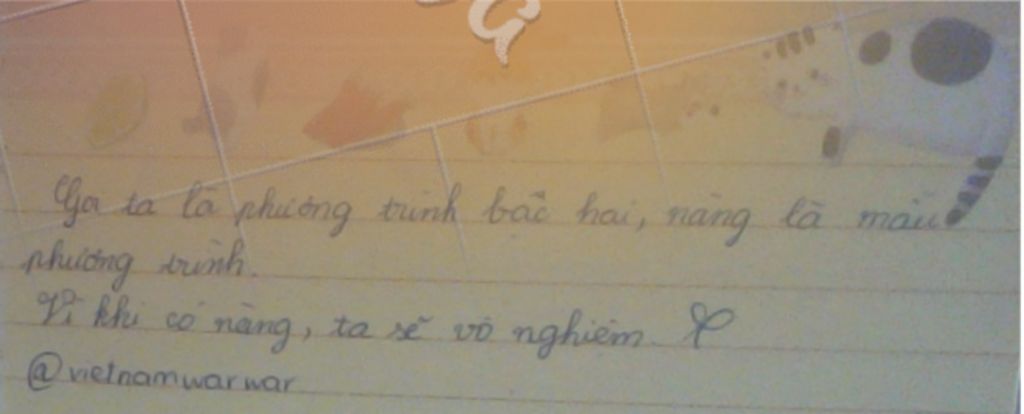 G
Gọi ta là phương trình bậc hai, nàng là mẫu
phương trình.
Vì khi có nàng, ta sẽ vô nghiệm.
@vietnamwarwar